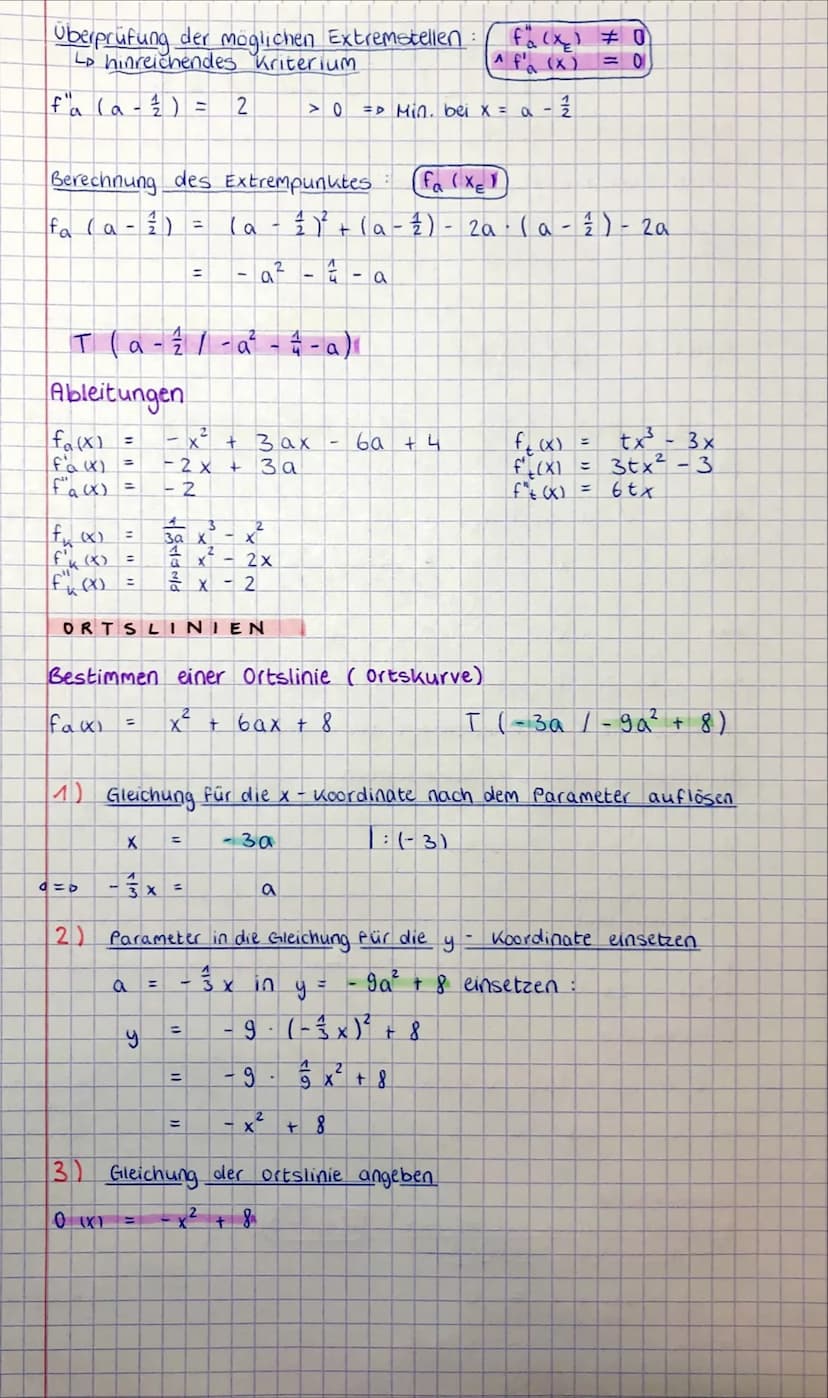 Überprüfung der möglichen Extremstellen : f"a (xE) ≠ 0
↳ hinreichendes Kriterium ∧ f'a (x) = 0
f"a (a - 1/2) = 2 > 0 => Min. bei x = a - 1/2
Berechnung des Extrempunktes : fa (xE)
fa (a - 1/2) = (a - 1/2)² + (a - 1/2) - 2a · (a - 1/2) - 2a
= - a² - 1/4 - a
T (a - 1/2 / -a² - 1/4 - a)
Ableitungen
fa(x) = - x² + 3ax - 6a + 4
f'a(x) = - 2x + 3a
f"a(x) = - 2
ft(x) = tx³ - 3x
f't(x) = 3tx² - 3
f"t(x) = 6tx
fk(x) = 1/3a x³ - x²
f'k(x) = 1/a x² - 2x
f"k(x) = 2/a x - 2
ORTSLINIEN
Bestimmen einer Ortslinie (Ortskurve)
fa(x) = x² + 6ax + 8 T (-3a / -9a² + 8)
1) Gleichung für die x - Koordinate nach dem Parameter auflösen
x = - 3a | : (-3)
<=> - 1/3 x = a
2) Parameter in die Gleichung für die y - Koordinate einsetzen
a = - 1/3 x in y = - 9a² + 8 einsetzen :
y = - 9 · (- 1/3 x)² + 8
= - 9 · 1/9 x² + 8
= - x² + 8
3) Gleichung der Ortslinie angeben
O (x) = - x² + 8